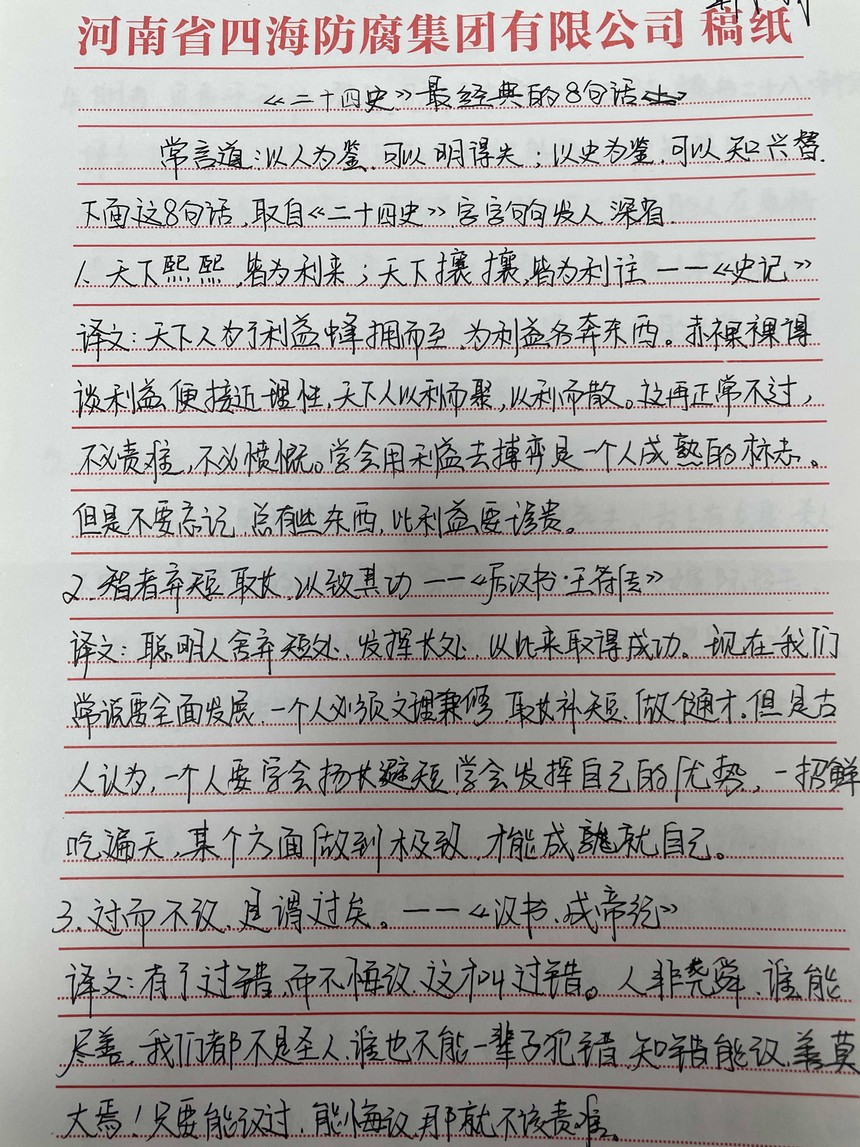 河南省四海防腐集团有限公司 稿纸
《二十四史》最经典的8句话
常言道：以人为鉴，可以明得失；以史为鉴，可以知兴替。
下面这8句话，取自《二十四史》，字字句句发人深省.
1、天下熙熙，皆为利来；天下攘攘，皆为利往 ——《史记》
译文：天下人为了利益蜂拥而至，为利益各奔东西。赤裸裸得
谈利益，便接近理性，天下人以利而聚，以利而散。这再正常不过，
不必责难，不必愤慨。学会用利益去搏弈是一个人成熟的标志。
但是不要忘记，总有些东西，比利益要珍贵。
2、智者弃短取长，以致其功 ——《后汉书·王符传》
译文：聪明人舍弃短处、发挥长处，以此来取得成功。现在我们
常说要全面发展，一个人必须文理兼修，取长补短，做个通才。但是古
人认为，一个人要学会扬长避短，学会发挥自己的优势，一招鲜
吃遍天，某个方面做到极致，才能成就自己。
3、过而不改，是谓过矣。——《汉书·成帝纪》
译文：有了过错，而不悔改，这才叫过错。人非尧舜，谁能
尽善，我们都不是圣人，谁也不能一辈子犯错，知错能改，善莫
大焉！只要能改过，能悔改，那就不该责难。